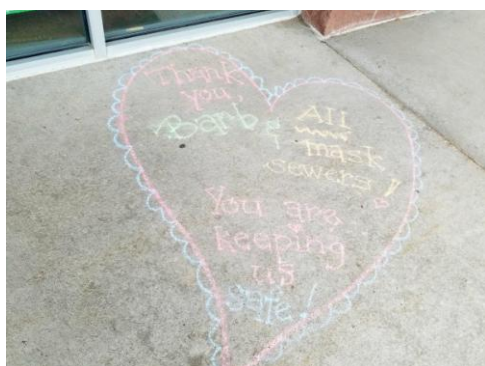 Thank
you,
Barb &
All
mask
sewers!
You are
keeping
us
safe!